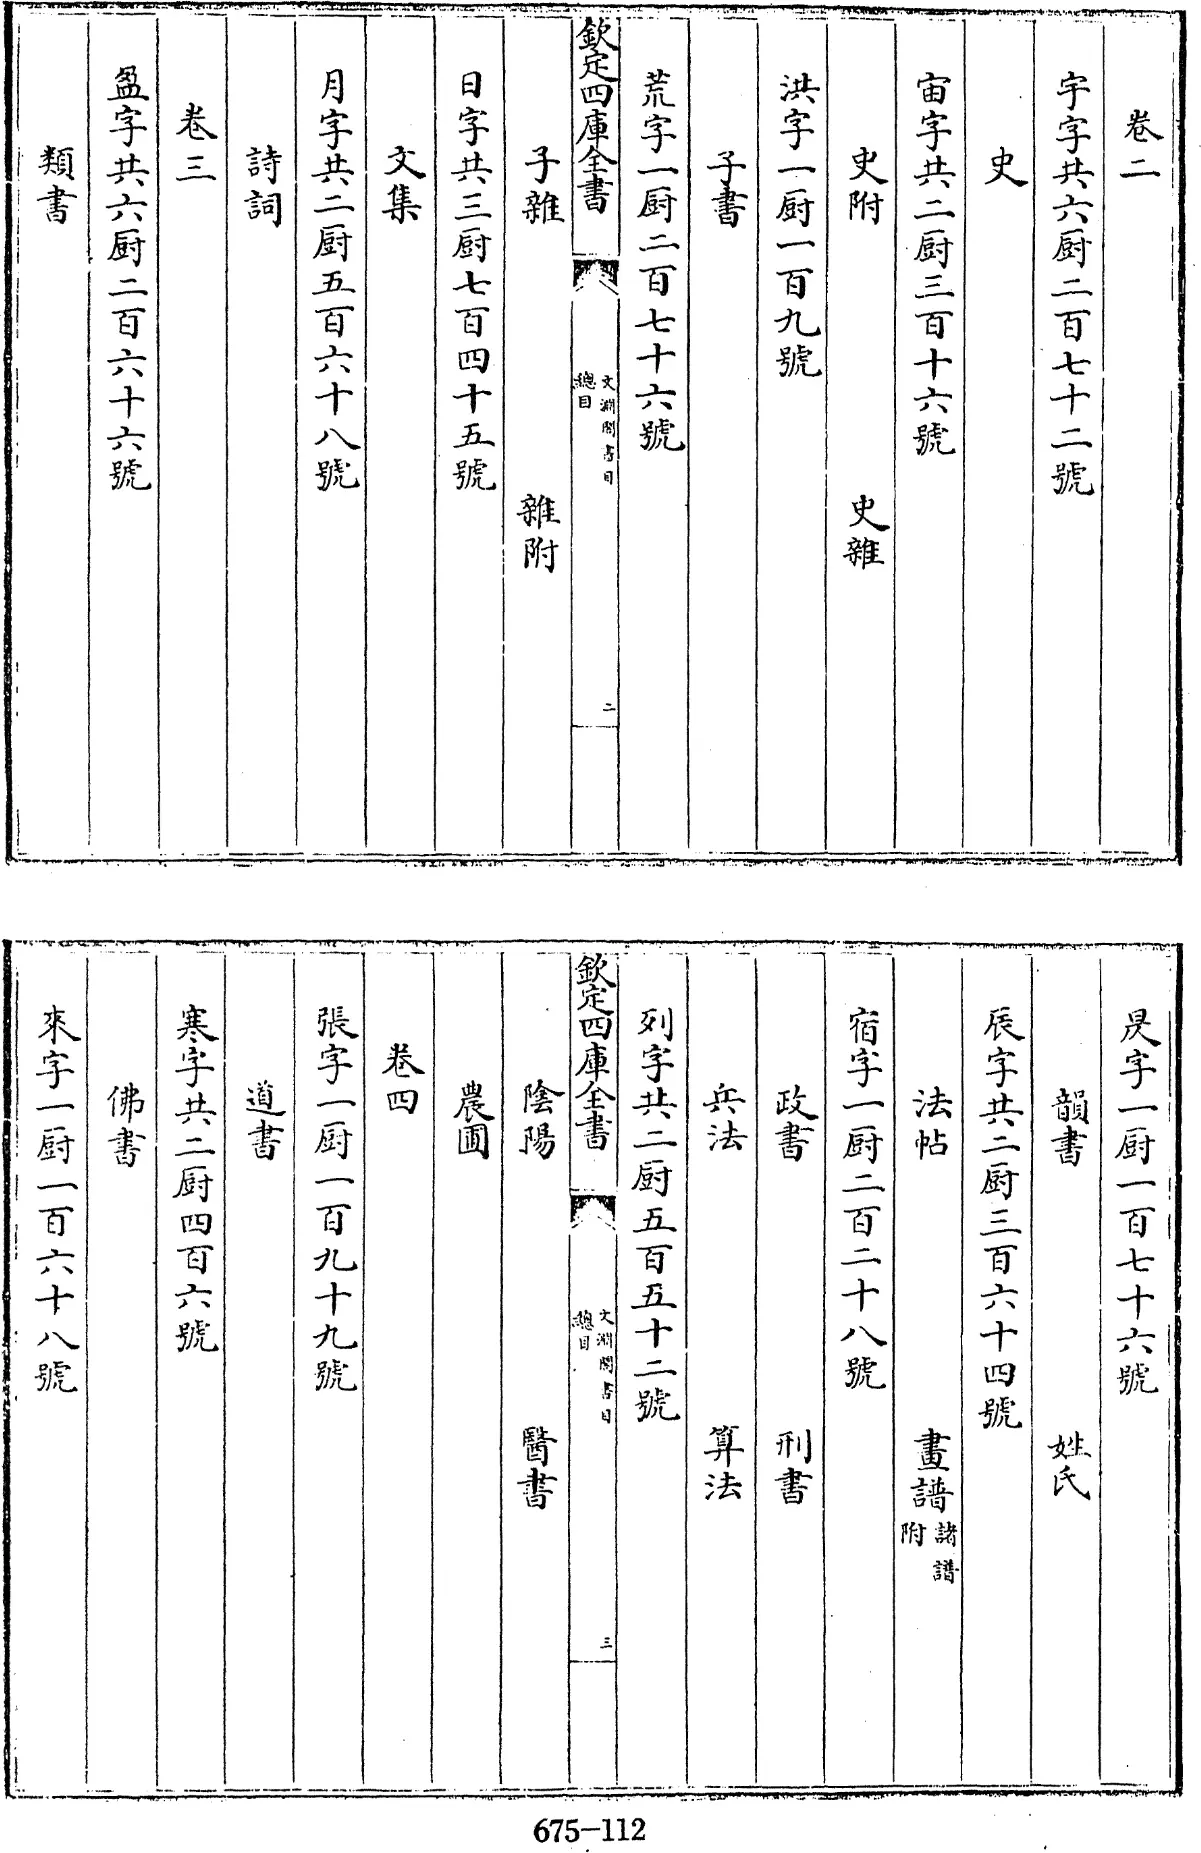 卷二
宇字共六厨二百七十二號
史
宙字共二厨三百十六號
史附 史雜
洪字一厨一百九號
子書
荒字一厨二百七十六號
欽定四庫全書 文淵閣書目總目 二
子雜 雜附
日字共三厨七百四十五號
文集
月字共二厨五百六十八號
詩詞
卷三
盈字共六厨二百六十六號
類書
昃字一厨一百七十六號
韻書 姓氏
辰字共二厨三百六十四號
法帖 畫譜諸譜附
宿字一厨二百二十八號
政書 刑書
兵法 算法
列字共二厨五百五十二號
欽定四庫全書 文淵閣書目總目 三
陰陽 醫書
農圃
卷四
張字一厨一百九十九號
道書
寒字共二厨四百六號
佛書
來字一厨一百六十八號
675-112